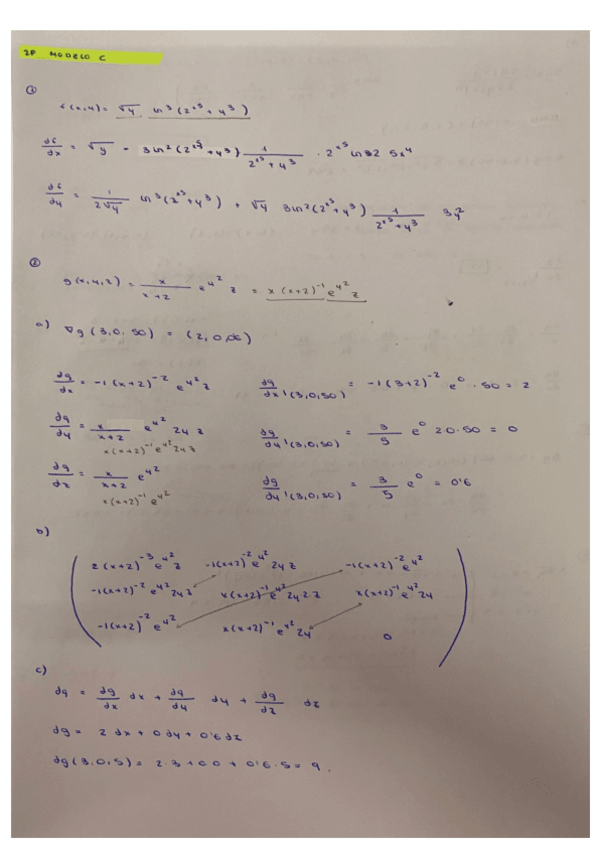 2P MODELO C
①
f(x,y) = √y ln³(2^x⁵ + y³)
df/dx = √y - 3ln²(2^x⁵ + y³) 1/(2^x⁵ + y³) · 2^x⁵ ln 2 5x⁴
df/dy = 1/(2√y) ln³(2^x⁵ + y³) + √y 3ln²(2^x⁵ + y³) 1/(2^x⁵ + y³) 3y²
②
g(x,y,z) = x/(x+2) e^y² z = x(x+2)⁻¹ e^y² z
a) ∇g(3,0,50) = (2,0,0'6)
dg/dx = -1(x+2)⁻² e^y² z dg/dx |(3,0,50) = -1(3+2)⁻² e⁰ · 50 = 2
dg/dy = x/(x+2) e^y² 2y z dg/dy |(3,0,50) = 3/5 e⁰ 2·0·50 = 0
x(x+2)⁻¹ e^y² 2y z
dg/dz = x/(x+2) e^y² dg/dy |(3,0,50) = 3/5 e⁰ = 0'6
x(x+2)⁻¹ e^y²
b)
2(x+2)⁻³ e^y² z -1(x+2)⁻² e^y² 2y z -1(x+2)⁻² e^y²
-1(x+2)⁻² e^y² 2y z x(x+2)⁻¹ e^y² 2y 2 z x(x+2)⁻¹ e^y² 2y
-1(x+2)⁻² e^y² x(x+2)⁻¹ e^y² 2y 0
c)
dg = dg/dx dx + dg/dy dy + dg/dz dz
dg = 2 dx + 0 dy + 0'6 dz
dg(3,0,5) = 2·3 + 0·0 + 0'6·5 = 9.